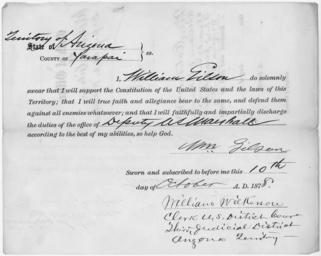 Territory of Arizona
State of
County of Yavapai } ss.
I, William Gilson, do solemnly
swear that I will support the Constitution of the United States and the laws of
this Territory; that I will true faith and allegiance bear to the same, and defend them
against all enemies whatsoever; and that I will faithfully and impartially discharge
the duties of the office of Deputy U.S. Marshall
according to the best of my abilities, so help God.
Wm Gilson
Sworn and subscribed to before me this 10th
day of October A. D. 1878.
William Wilkerson
Clerk U.S. District Court
Third Judicial District
Arizona Territory